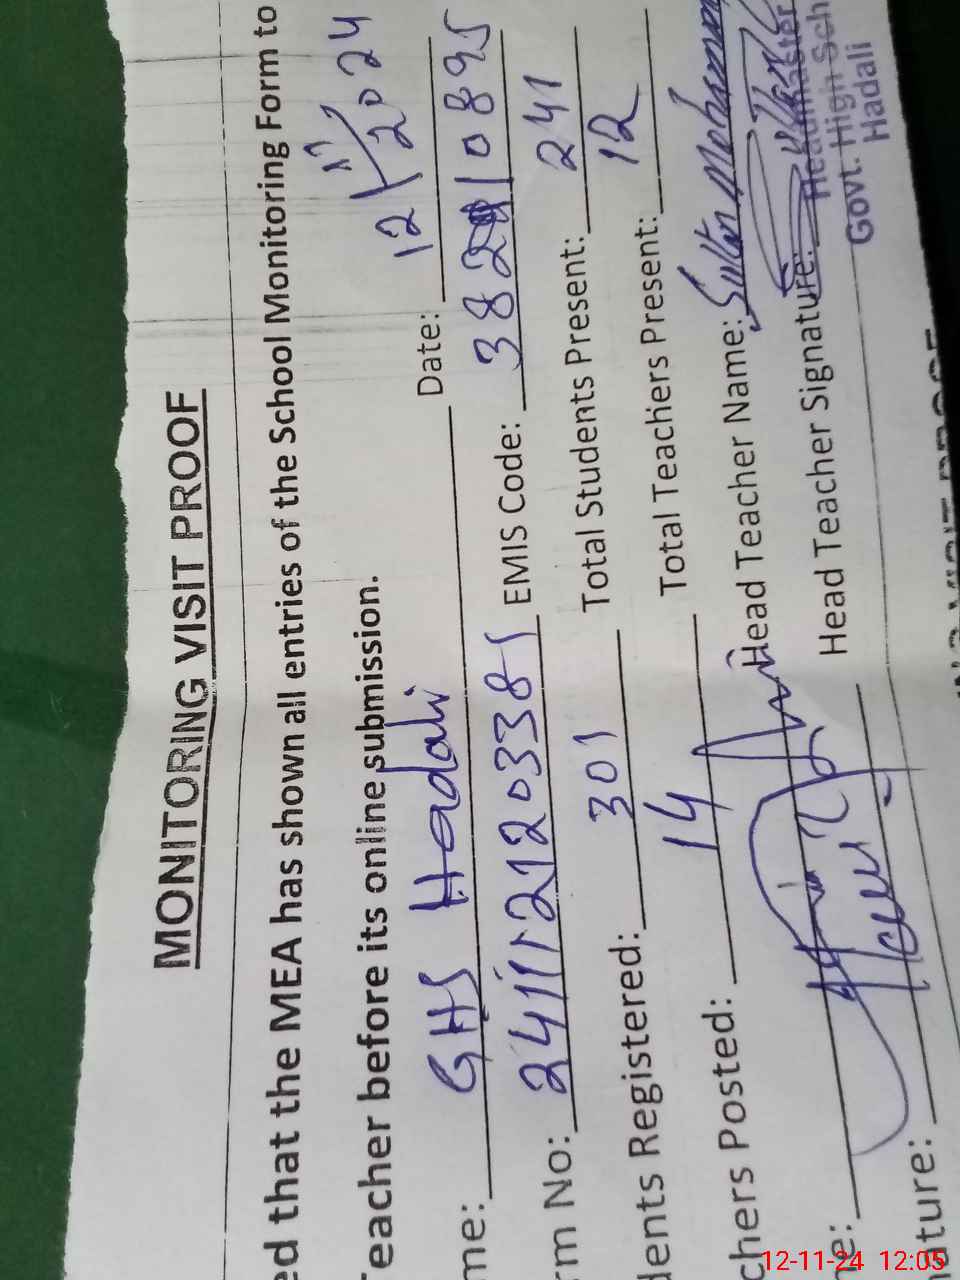 MONITORING VISIT PROOF
ed that the MEA has shown all entries of the School Monitoring Form to
Teacher before its online submission.
me: GHS Hadali Date: 12/11/2024
rm No: EMIS Code:
dents Registered: 301 Total Students Present: 241
chers Posted: 14 Total Teachers Present: 12
ne: Head Teacher Name: Sultan Mohammad
nature: Head Teacher Signature:
Headmaster
Govt. High Sch
Hadali
12-11-24 12:05